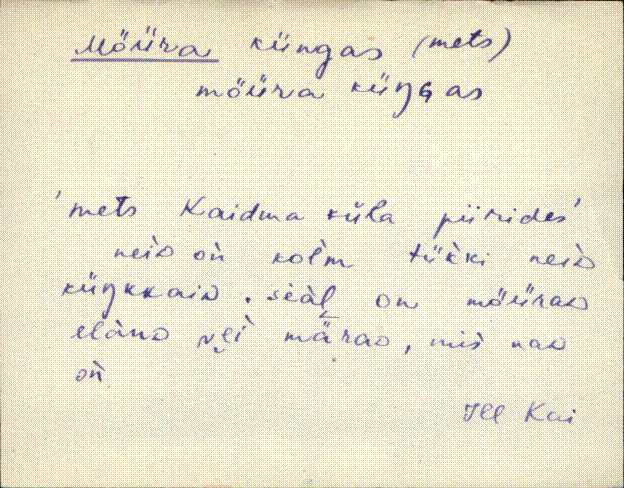 Möüra küngas (mets)
möüra küŋGas
'mets Kaidma küla piirides'
neiᴅ oǹ kolm̀ tük̀ki neiᴅ
küŋkkaiᴅ. sèàl̬ on möüraᴅ
elànᴅ vèi märaᴅ, mis̀ naᴅ
oǹ
Ill Kai